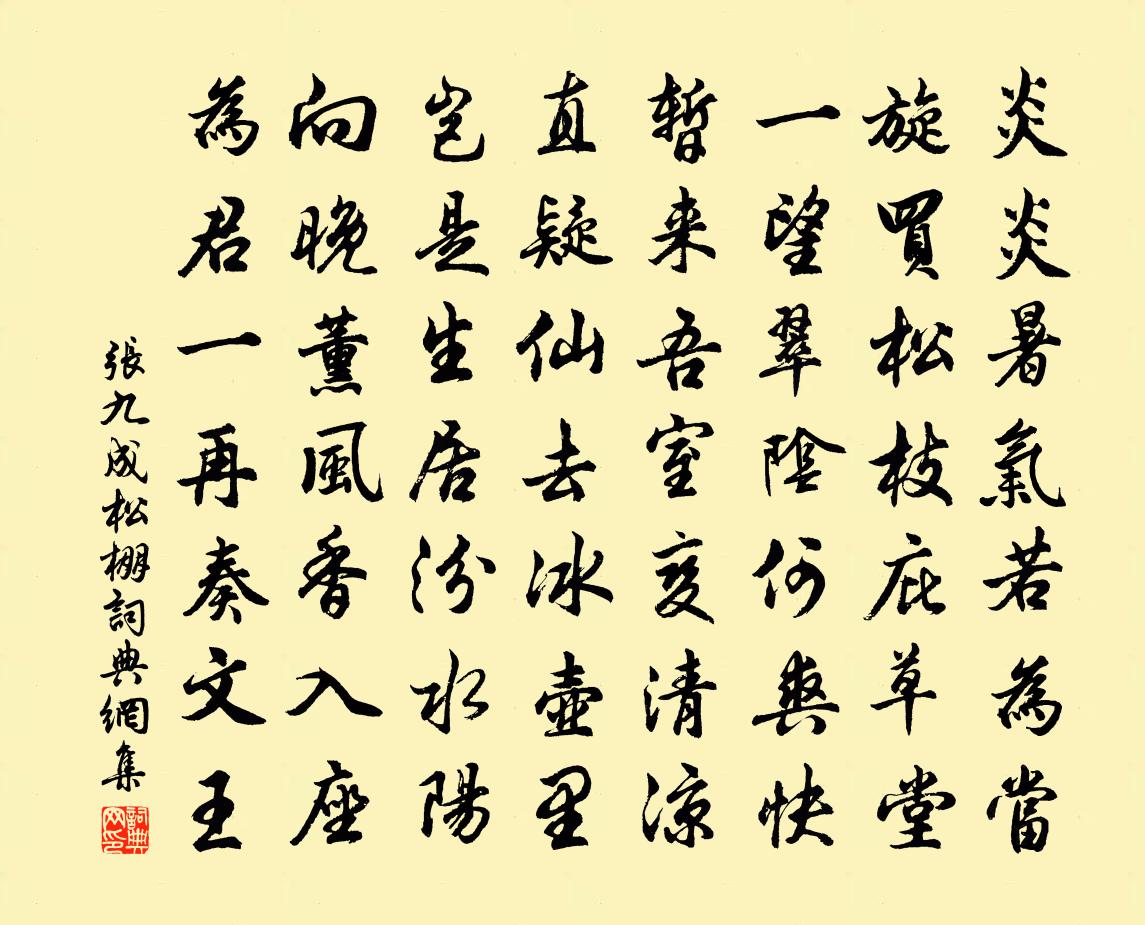 炎炎暑氣若為當
旋買松枝庇草堂
一望翠陰何爽快
暫来吾室變清涼
直疑仙去冰壺里
豈是生居汾水陽
向晚薰風香入座
為君一再奏文王
張九成松棚詞典網集
詞典網印